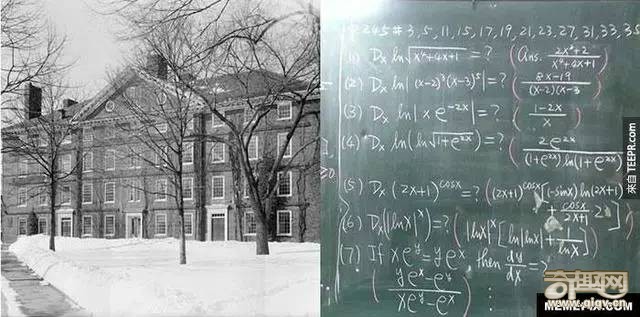 P. 245 # 3, 5, 11, 15, 17, 19, 21, 23, 27, 31, 33, 35
(1) Dx ln√(x⁴+4x+1) = ? (Ans. (2x³+2)/(x⁴+4x+1))
(2) Dx ln|(x-2)³(x-3)⁵| = ? ((8x-19)/((x-2)(x-3)
(3) Dx ln|x e^(-2x)| = ? ((1-2x)/x)
(4) Dx ln(ln√(1+e^(2x))) = ? (2e^(2x)/((1+e^(2x))ln(1+e^(2x))
(5) Dx (2x+1)^(cosx) = ? ((2x+1)^(cosx)[(-sinx)ln(2x+1)
+ cosx/(2x+1) 2])
(6) Dx(|lnx|^x) = ? (|lnx|^x[ln|lnx| + 1/lnx])
(7) If xe^y = ye^x, then dy/dx = ?
((ye^x - e^y)/(xe^y - e^x))
来自 TEEPR.com
奇趣网
www.qiqv.cn
MEMEPIX.COM